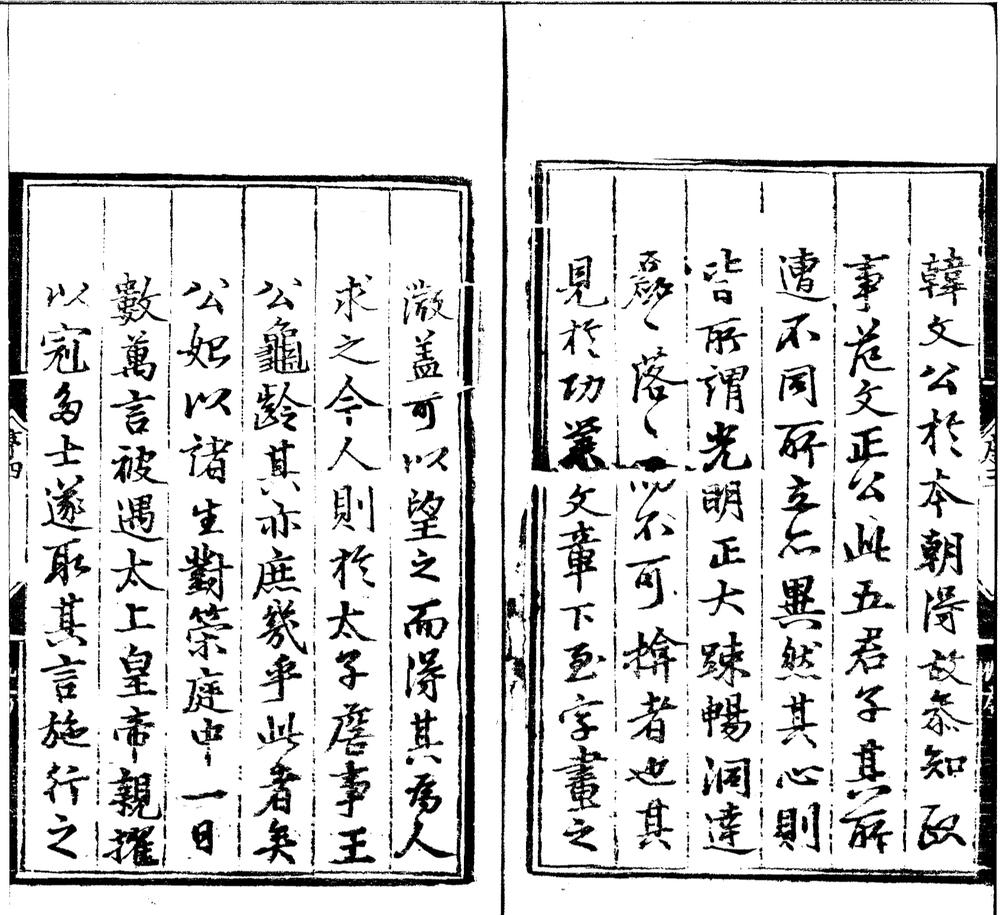 韓文公於本朝得故叅知政
事范文正公此五君子其所
遭不同所立亦異然其心則
皆所謂光明正大踈暢洞達
磊〻落〻而不可揜者也其
見於功業文章下至字畫之
微盖可以望之而得其爲人
求之今人則於太子詹事王
公龜齡其亦庶幾乎此者矣
公始以諸生對策庭中一日
數萬言被遇太上皇帝親擢
以冠多士遂取其言施行之
序四